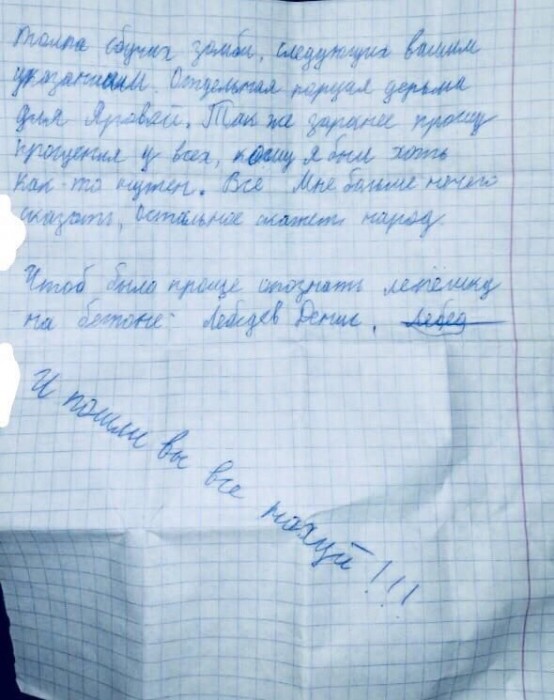 толпа сбучих зомби, следующих вашим
указаниям. Отдельная порция дерьма
для Яровой. Так же заранее прошу
прощения у всех, кому я был хоть
как-то нужен. Все мне больше нечего
сказать, остальное скажет народ.
Чтоб было проще опознать лепёшку
на бетоне: Лебедев Денис. Лебед
И пошли вы все нахуй!!!